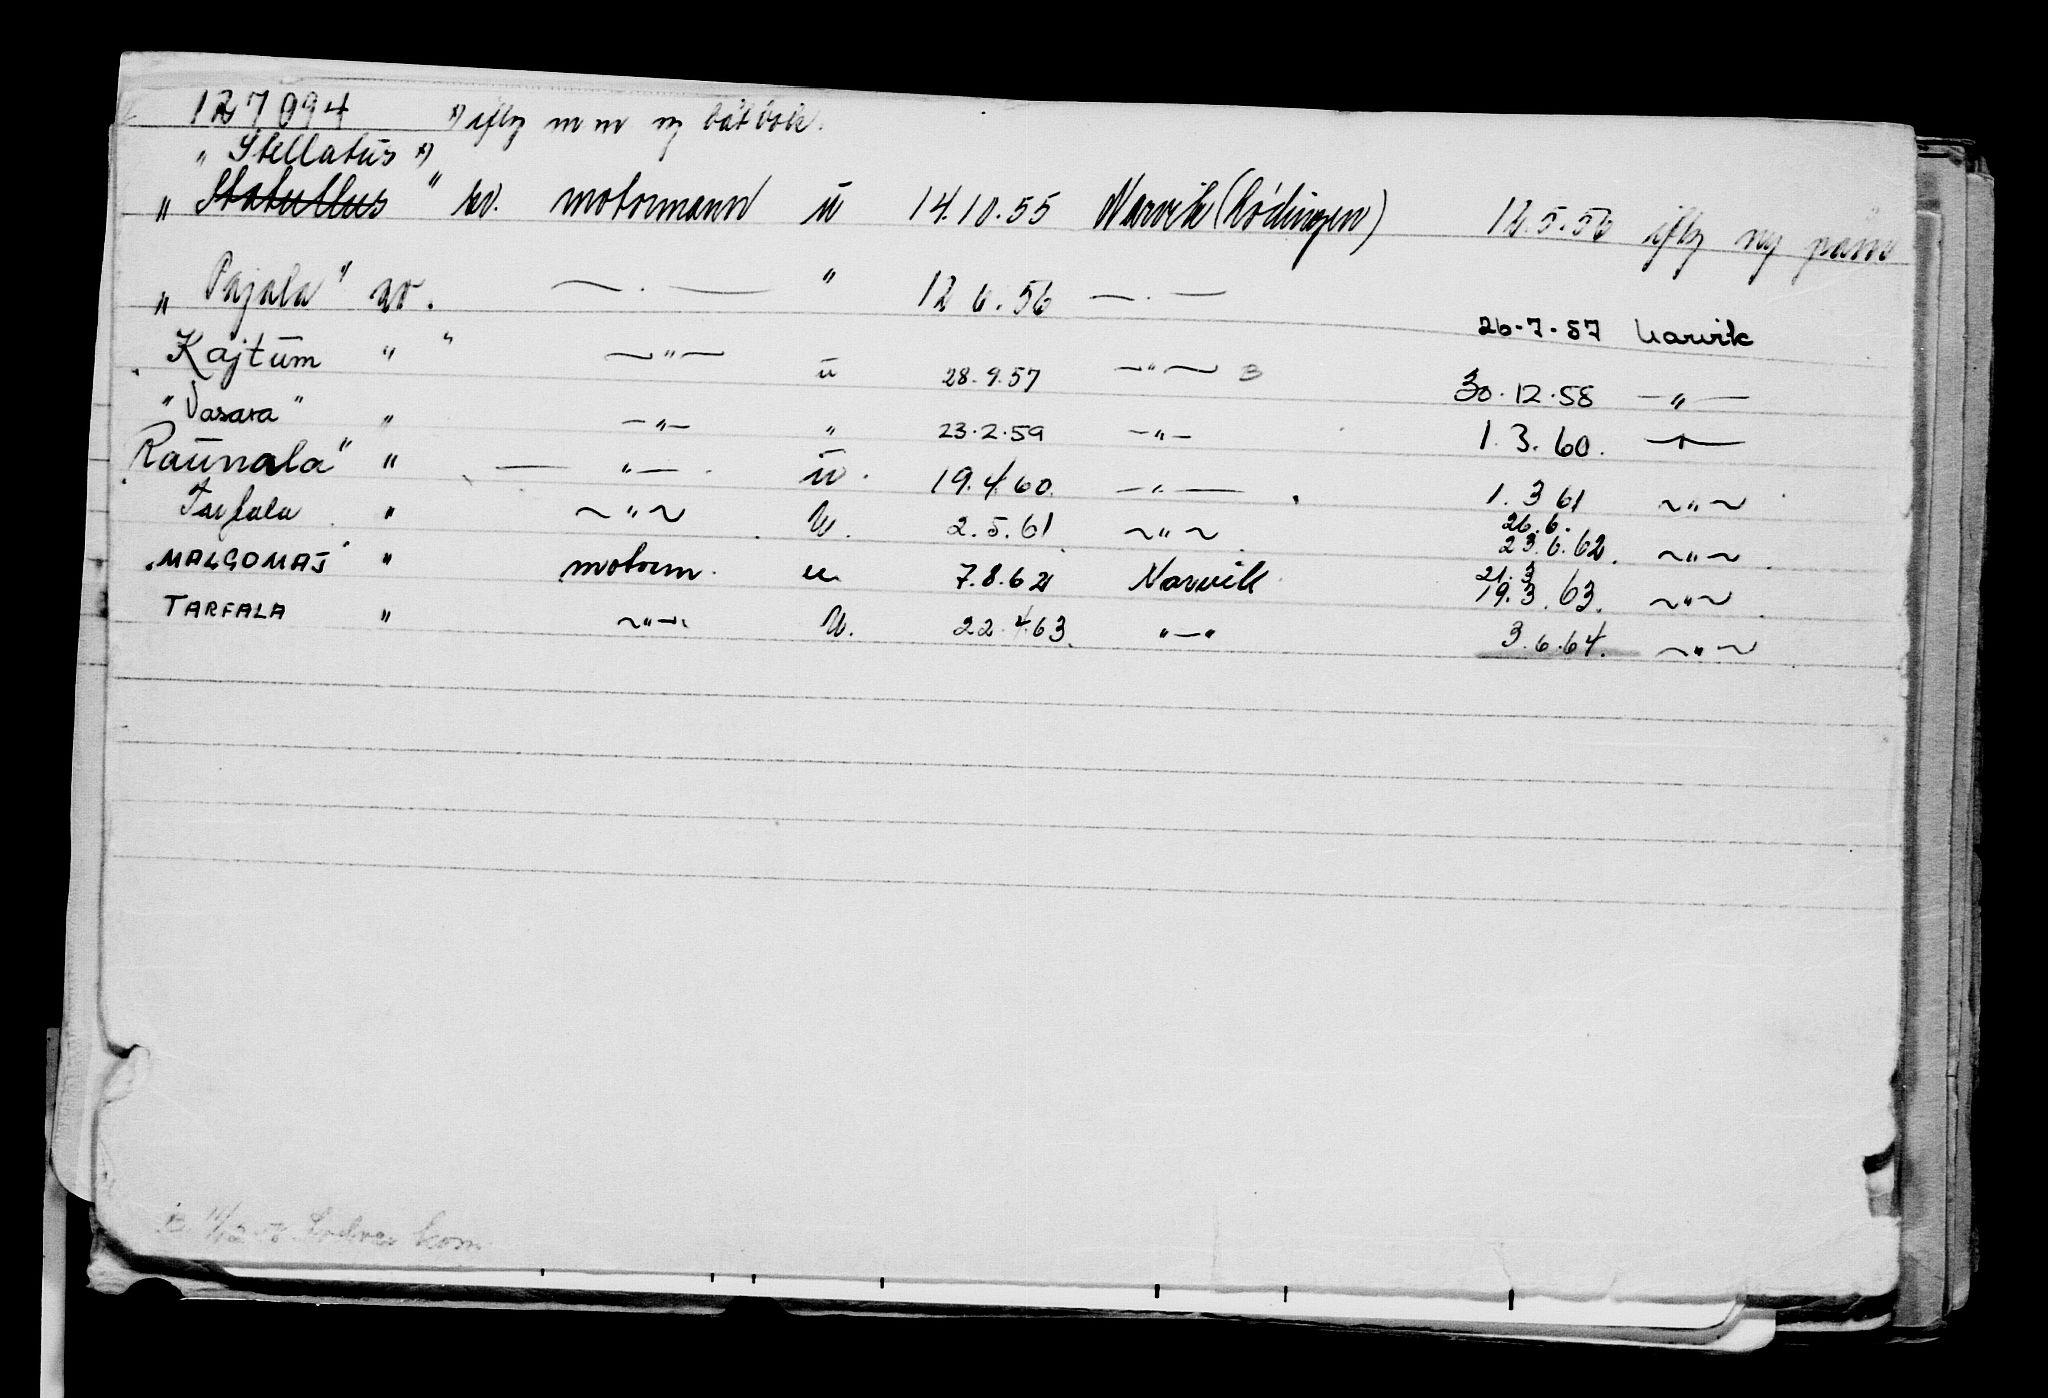 127094 x) iflg m m ny båt bok.
" Stellatus x)
" Statullus " sv. motormann u 14.10.55 Narvik (Lödingen) 12.5.56 iflg ny
" Pajala " sv. — . — " 12 6.56 — . —
26-7-57 Narvik
Kajtum " " — " — u 28.9.57 — " — B 30.12.58 — " —
" Vasara " " — " — " 23.2.59 — " — 1.3.60. — " —
Raunala " " — " — . u. 19.4.60. — " — . 1.3 61 ~ " ~
26.6.
Tarfala " ~ " ~ u. 2.5.61 ~ " ~ 23.6.62. ~ " ~
21.3
"MALGOMAJ" " motorm. u. 7.8.62 Narvik 19.3.63. ~ " ~
TARFALA " ~ " ~ u. 22.4.63. " — " 3.6.64. ~ " ~
B. kom